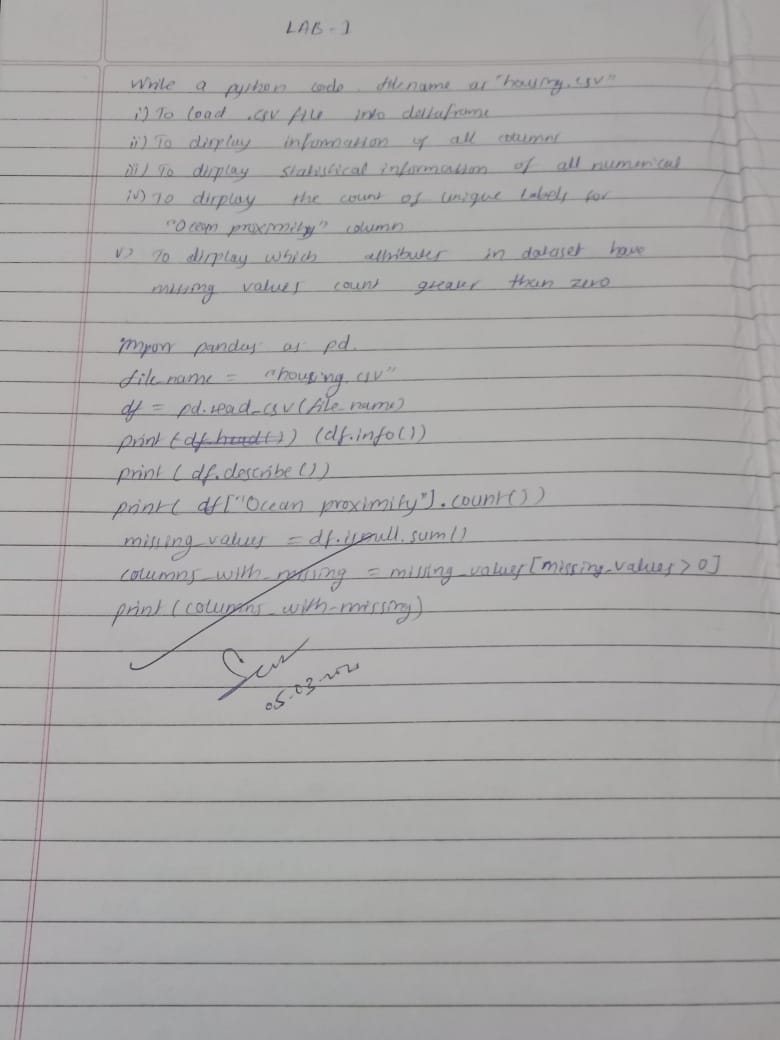 LAB - 1
Write a python code filename as "housing.csv"
i) To load .csv file into dataframe
ii) To display information of all columns
iii) To display statistical information of all numerical
iv) To display the count of unique labels for
"Ocean proximity" column
v) To display which attributes in dataset have
missing values count greater than zero
import pandas as pd.
file_name = "housing.csv"
df = pd.read_csv(file_name)
print (df.head()) (df.info())
print (df.describe())
print( df["Ocean proximity"].count())
missing_values = df.isnull.sum()
columns_with_missing = missing_values[missing_values > 0]
print (columns_with-missing)
05.03.202